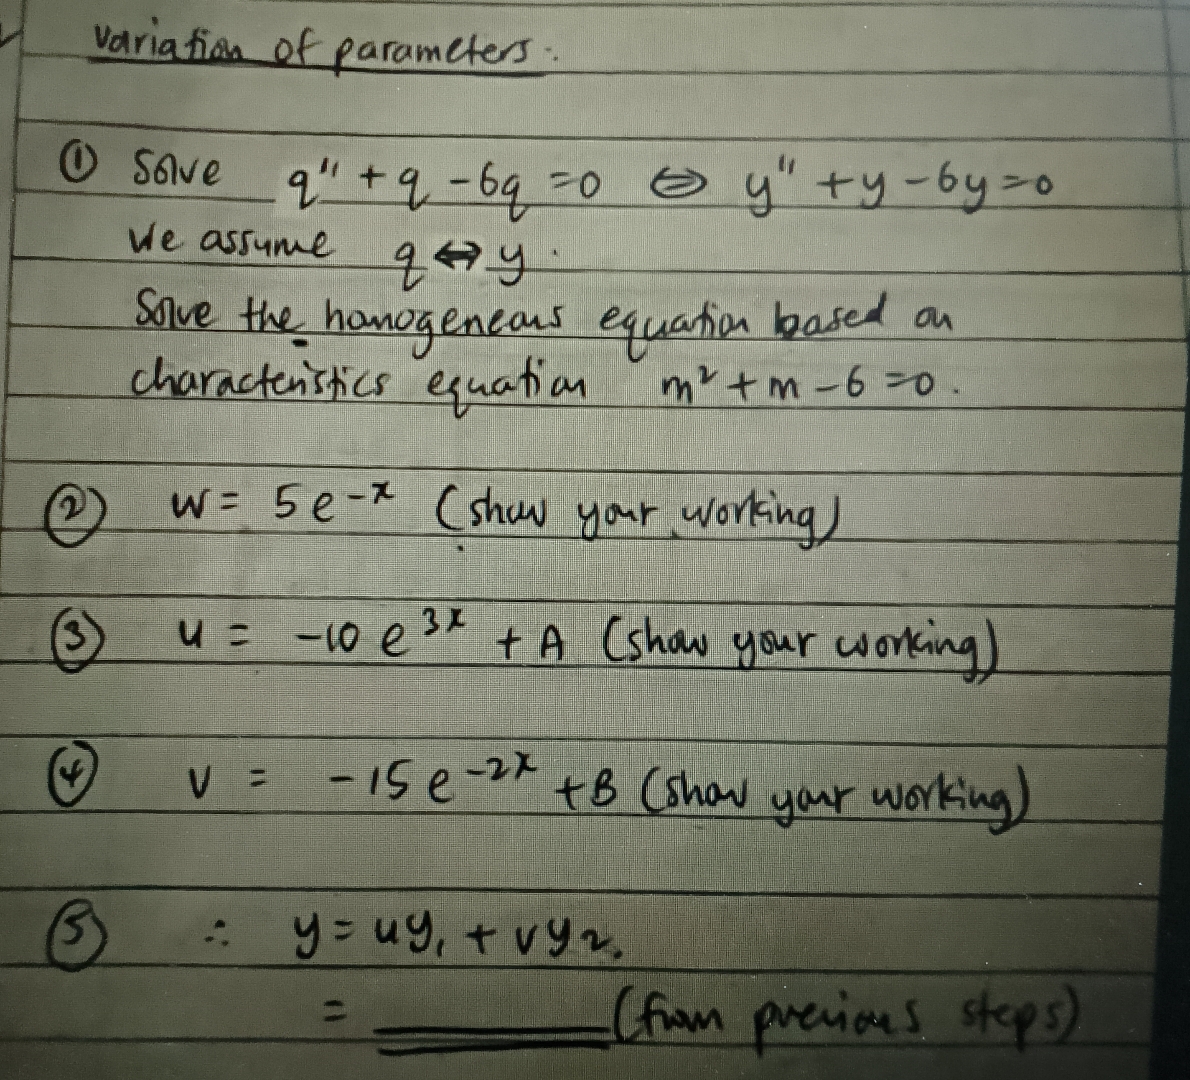 Variation of parameters.
① Solve q'' + q - 6q = 0 ⇔ y'' + y - 6y = 0
We assume q ↔ y.
Solve the homogeneous equation based on
characteristics equation m² + m - 6 = 0.
② w = 5e^-x (show your working)
③ u = -10e^3x + A (show your working)
④ v = -15e^-2x + B (show your working)
⑤ ∴ y = uy₁ + vy₂.
= ________ (from previous steps)